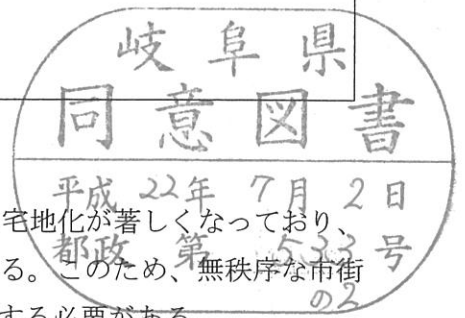 岐阜県
同意図書
平成 22年 7月 2日
都政 第 533 号
の2
宅地化が著しくなっており、
る。このため、無秩序な市街
する必要がある